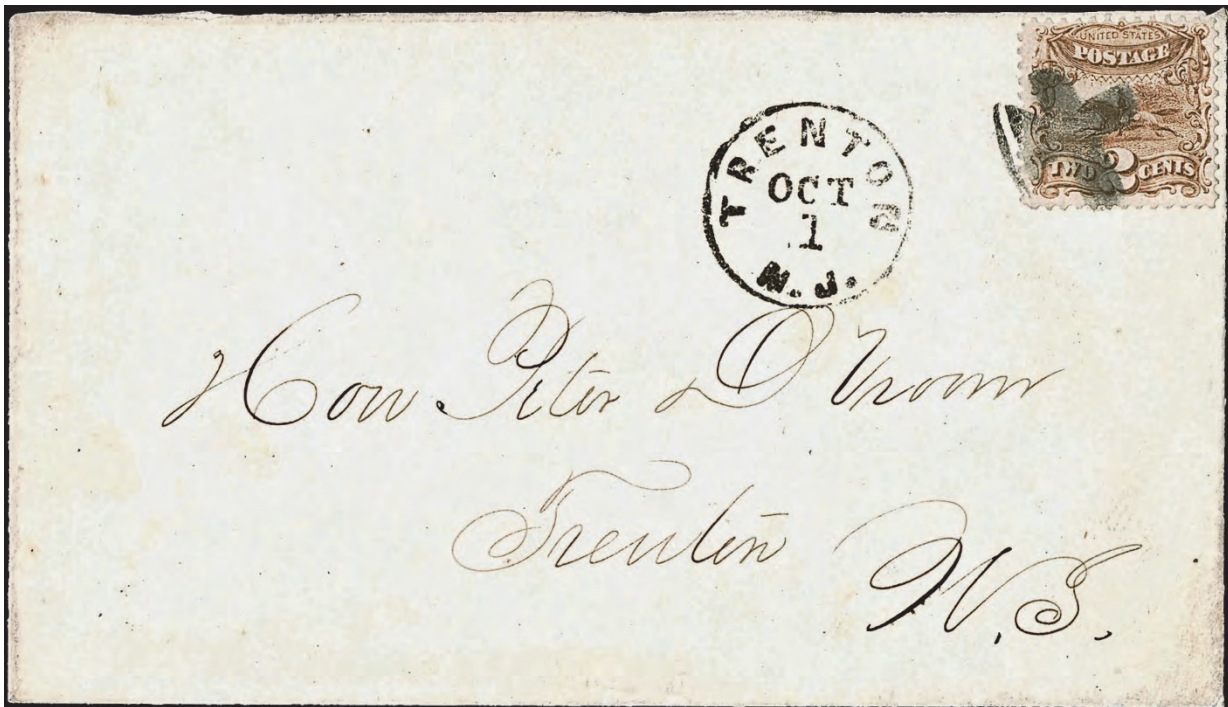 UNITED STATES
POSTAGE
TWO 2 CENTS
TRENTON
OCT
1
N.J.
Hon Peter D Vroom
Trenton
N.J.